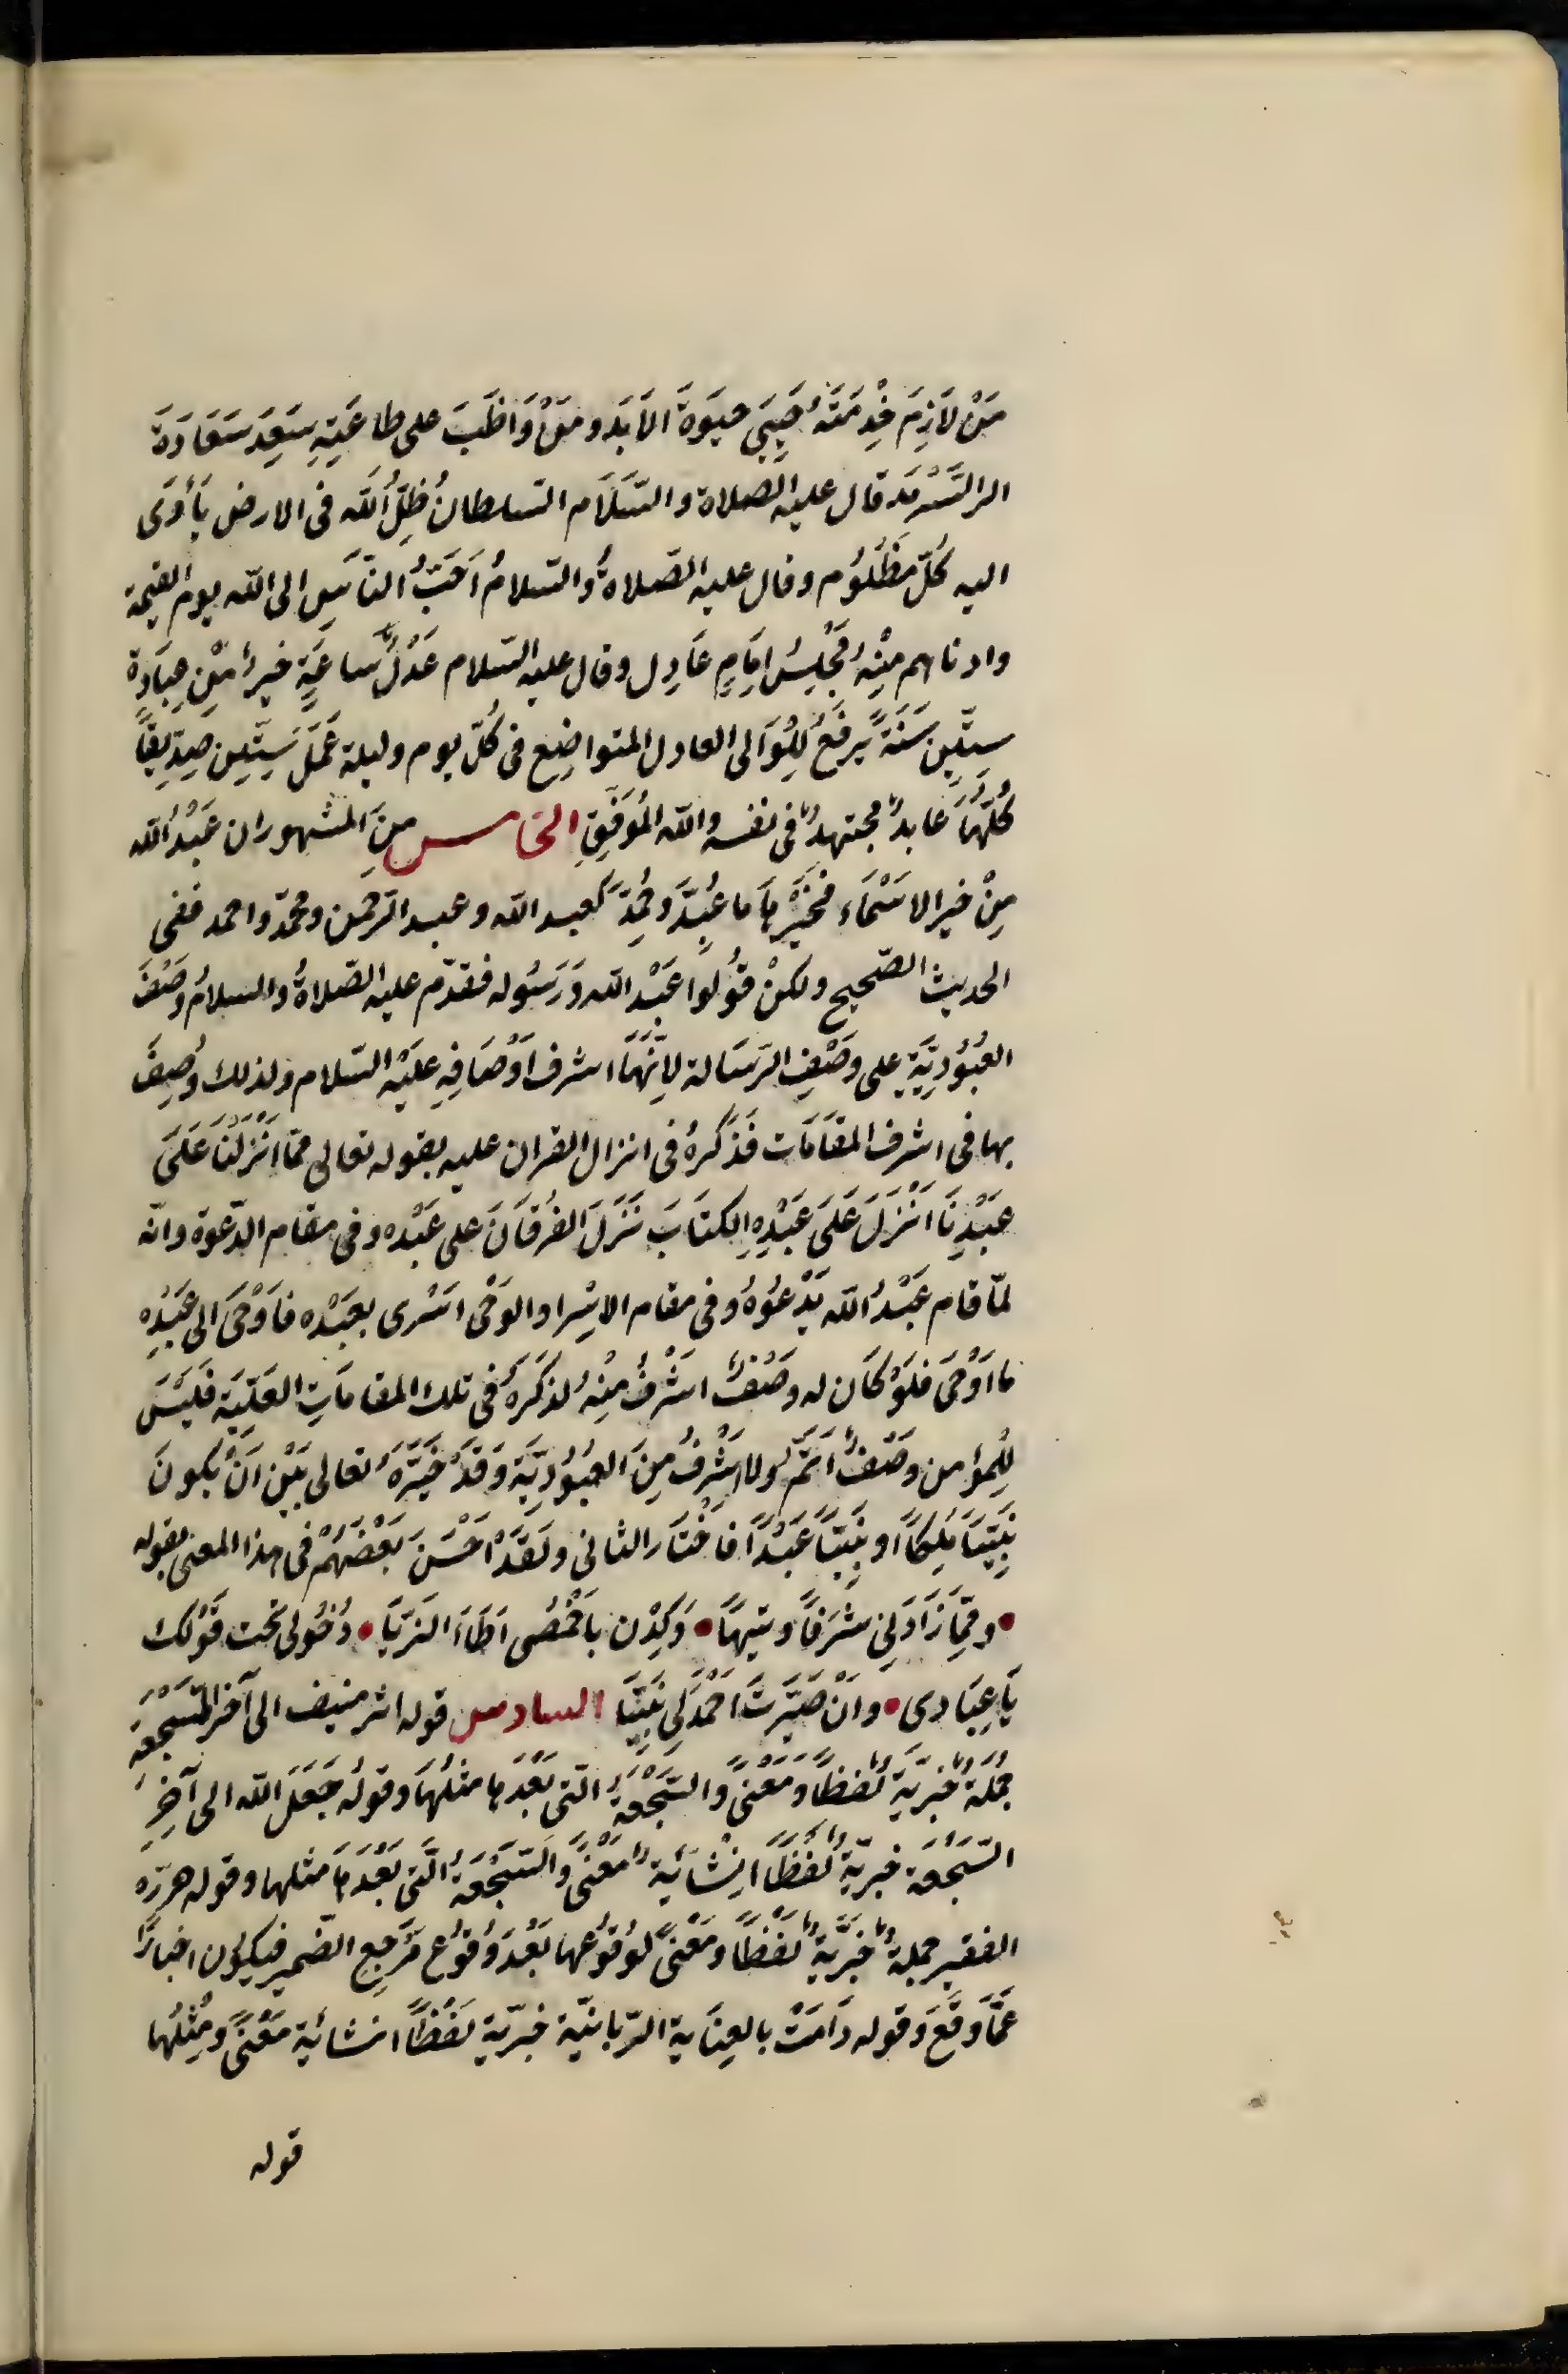 مَنْ لَازِمَ خِدْمَتَهُ حَيِيَ حيَوةَ الاَبَد ومَنْ وَاظَبَ على طاعَتِهِ سَعِدَ سَعَادَةَ
السَّرْمَد قال عليه الصلاة والسَّلَام السلطانُ ظِلُّ الله فى الارض يَأوَى
اليه كُلّ مَظْلُوم وقال عليه الصّلاةُ والسّلامُ اَحَبُّ النّاسِ الى الله يوم القيمة
وادناهم مِنْهُ مَجْلِسُ اِمَامٍ عَادِل وقال عليه السّلام عَدْلُ ساعَةٍ خيرٌ مْنِ عِبَادِة
سِتّينَ سَنَةً يُرفَعُ لِلْوَالى العادل المتواضِع فى كُلّ يوم وليلة عَمَلَ سِتّينَ صِدِّيقًا
كُلّهَا عابدٌ مجتهدٌ فى نفسه والله المُوَفِّقِ الخامس مِنَ المشهور ان عَبْدُ الله
مِنْ خير الاسْمَاء فخَيْرهَا ما عُبِّدَ وحُمِّدَ كعبد الله وعبد الرّحمن ومحمّد واحمد ففى
الحديث الصّحيح ولكنْ قُولُوا عَبْد الله وَرَسُوله فقدّم عليه الصّلاةُ والسلامُ وَصْفَ
العُبُوُدِيَّةِ على وصْفِ الرّسَالة لاِنَّهَا اشرف اَوْصَافِهِ عليْه السّلام ولذلك وُصِفَ
بها فى اشرف المقَامَات فَذَكَرهُ فى انزال القران عليه بقوله تعالى ممّا اَنْزَلْنَا عَلَى
عَبْدِنَا اَنْزَلَ عَلَى عَبْدِهِ الكتابَ نَزَّلَ الفُرْقَانَ على عَبْده وفى مقام الدّعوة وانّه
لمّا قام عَبْدُ الله يَدْعُوهُ وفى مقام الاسْرا والوَحْى اسْرى بعَبْده فاَوْحَى الى عَبْدِهِ
ما اَوْحَى فلَوْ كَان له وصْفٌ اشْرفُ مِنْهُ لذكَرَهُ فى تلك المقاماتِ العَلّيَة فَلَيْسَ
لِلْمؤمن وصْفٌ اَتَمّ ولا اشْرفُ مِنَ العُبُودِيّة وَقَدْ خَيَّرَهُ تعالى بَيْن اَنْ يكونَ
نَبِيّاً مَلِكاً او نَبِيّاً عَبْدًا فاخْتَار الثانى ولَقَدْ اَحْسَنَ بَعْضُهُمْ فى هذا المعنى بقوله
• وممَّا زَادَنِى شَرَفًا وتيهًا • وَكِدْتُ باَخْمَصى اَطَاءُ الثرَيَّا • دُخُولى تحت قَوْلك
يَا عِبَادى • واَنْ صَيَّرْتَ اَحْمَدَ لِى نَبِيَّا السادس قوله اشر منيف الى آخر السّجْعة
جُمْلةٌ خَبَريّةٌ لَفْظًا وَمَعْنىً والسّجْعَةُ الّتى بَعْدَها مثلُها وَقولُه جَعَلَ الله الى آخِرِ
السّجْعَة خبريّةٌ لَفْظًا اِنشائيةٌ مَعْنًى والسّجْعَةُ الّتى بَعْدَهَا مثلها وقوله حرّره
الفقير جملةٌ خَبَرّيةٌ لَفْظًا وَمَعْنىً لِوُقُوعها بَعْدَ وُقوُع مَرْجِع الضّمير فيكون اخبارًا
عَمَّا وَقَعَ وَقوله دَامَتْ بالعِنَاية الرّبانيّة خبريّة لَفْظًا انشائية مَعْنًى ومثْلُها
قوله